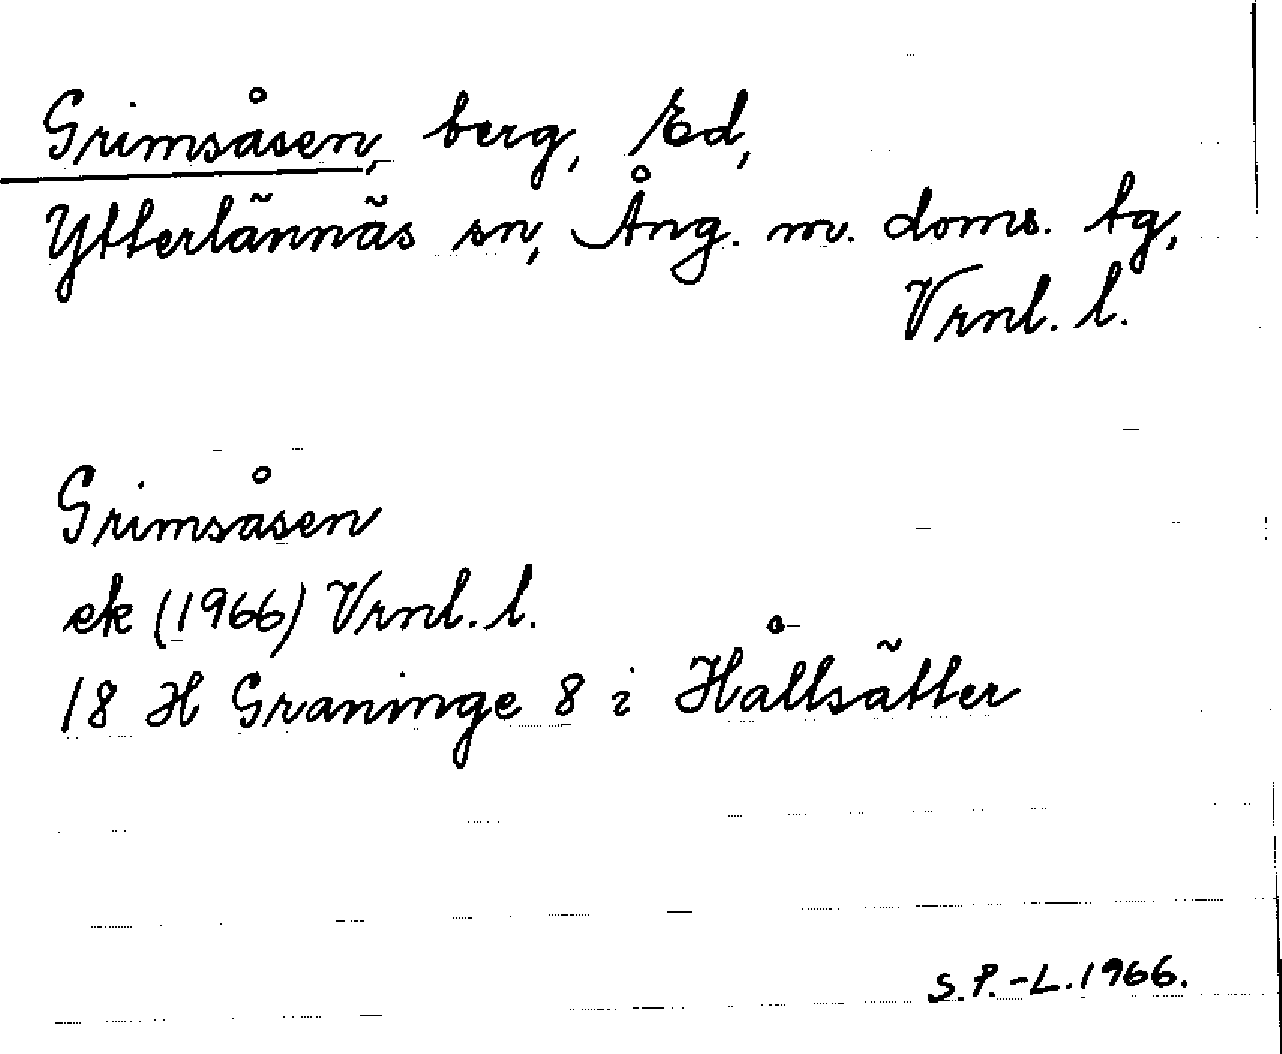 Grimsåsen, berg, Ed,
Ytterlännäs sn, Ång. m. doms. tg,
Vrnl. l.
Grimsåsen
ek (1966) Vrnl. l.
18 H Graninge 8 i Hållsätter
S.P.-L. 1966.